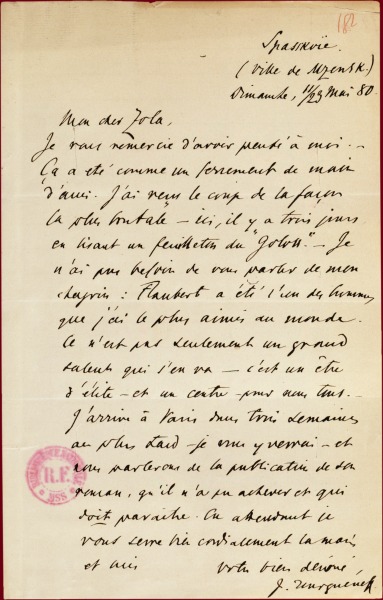 182
Spasskoïe.
(Ville de Mzensk.)
Dimanche, 11/23 Mai 80.
Mon cher Zola,
Je vous remercie d'avoir pensé à moi. –
Ça a été comme un serrement de main
d'ami. J'ai reçu le coup de la façon
la plus brutale – ici, il y a trois jours
en lisant un feuilleton du "Goloss". – Je
n'ai pas besoin de vous parler de mon
chagrin : Flaubert a été l'un des hommes
que j'ai le plus aimés au monde.
Ce n'est pas seulement un grand
talent qui s'en va – c'est un être
d'élite – et un centre – pour nous tous.
J'arrive à Paris dans trois semaines
au plus tard – je vous y verrai – et
nous parlerons de la publication de son
roman, qu'il n'a pu achever et qui
doit paraître. En attendant je
vous serre bien cordialement la main
et suis votre bien dévoué,
J. Tourguéneff
R.F.
MSS